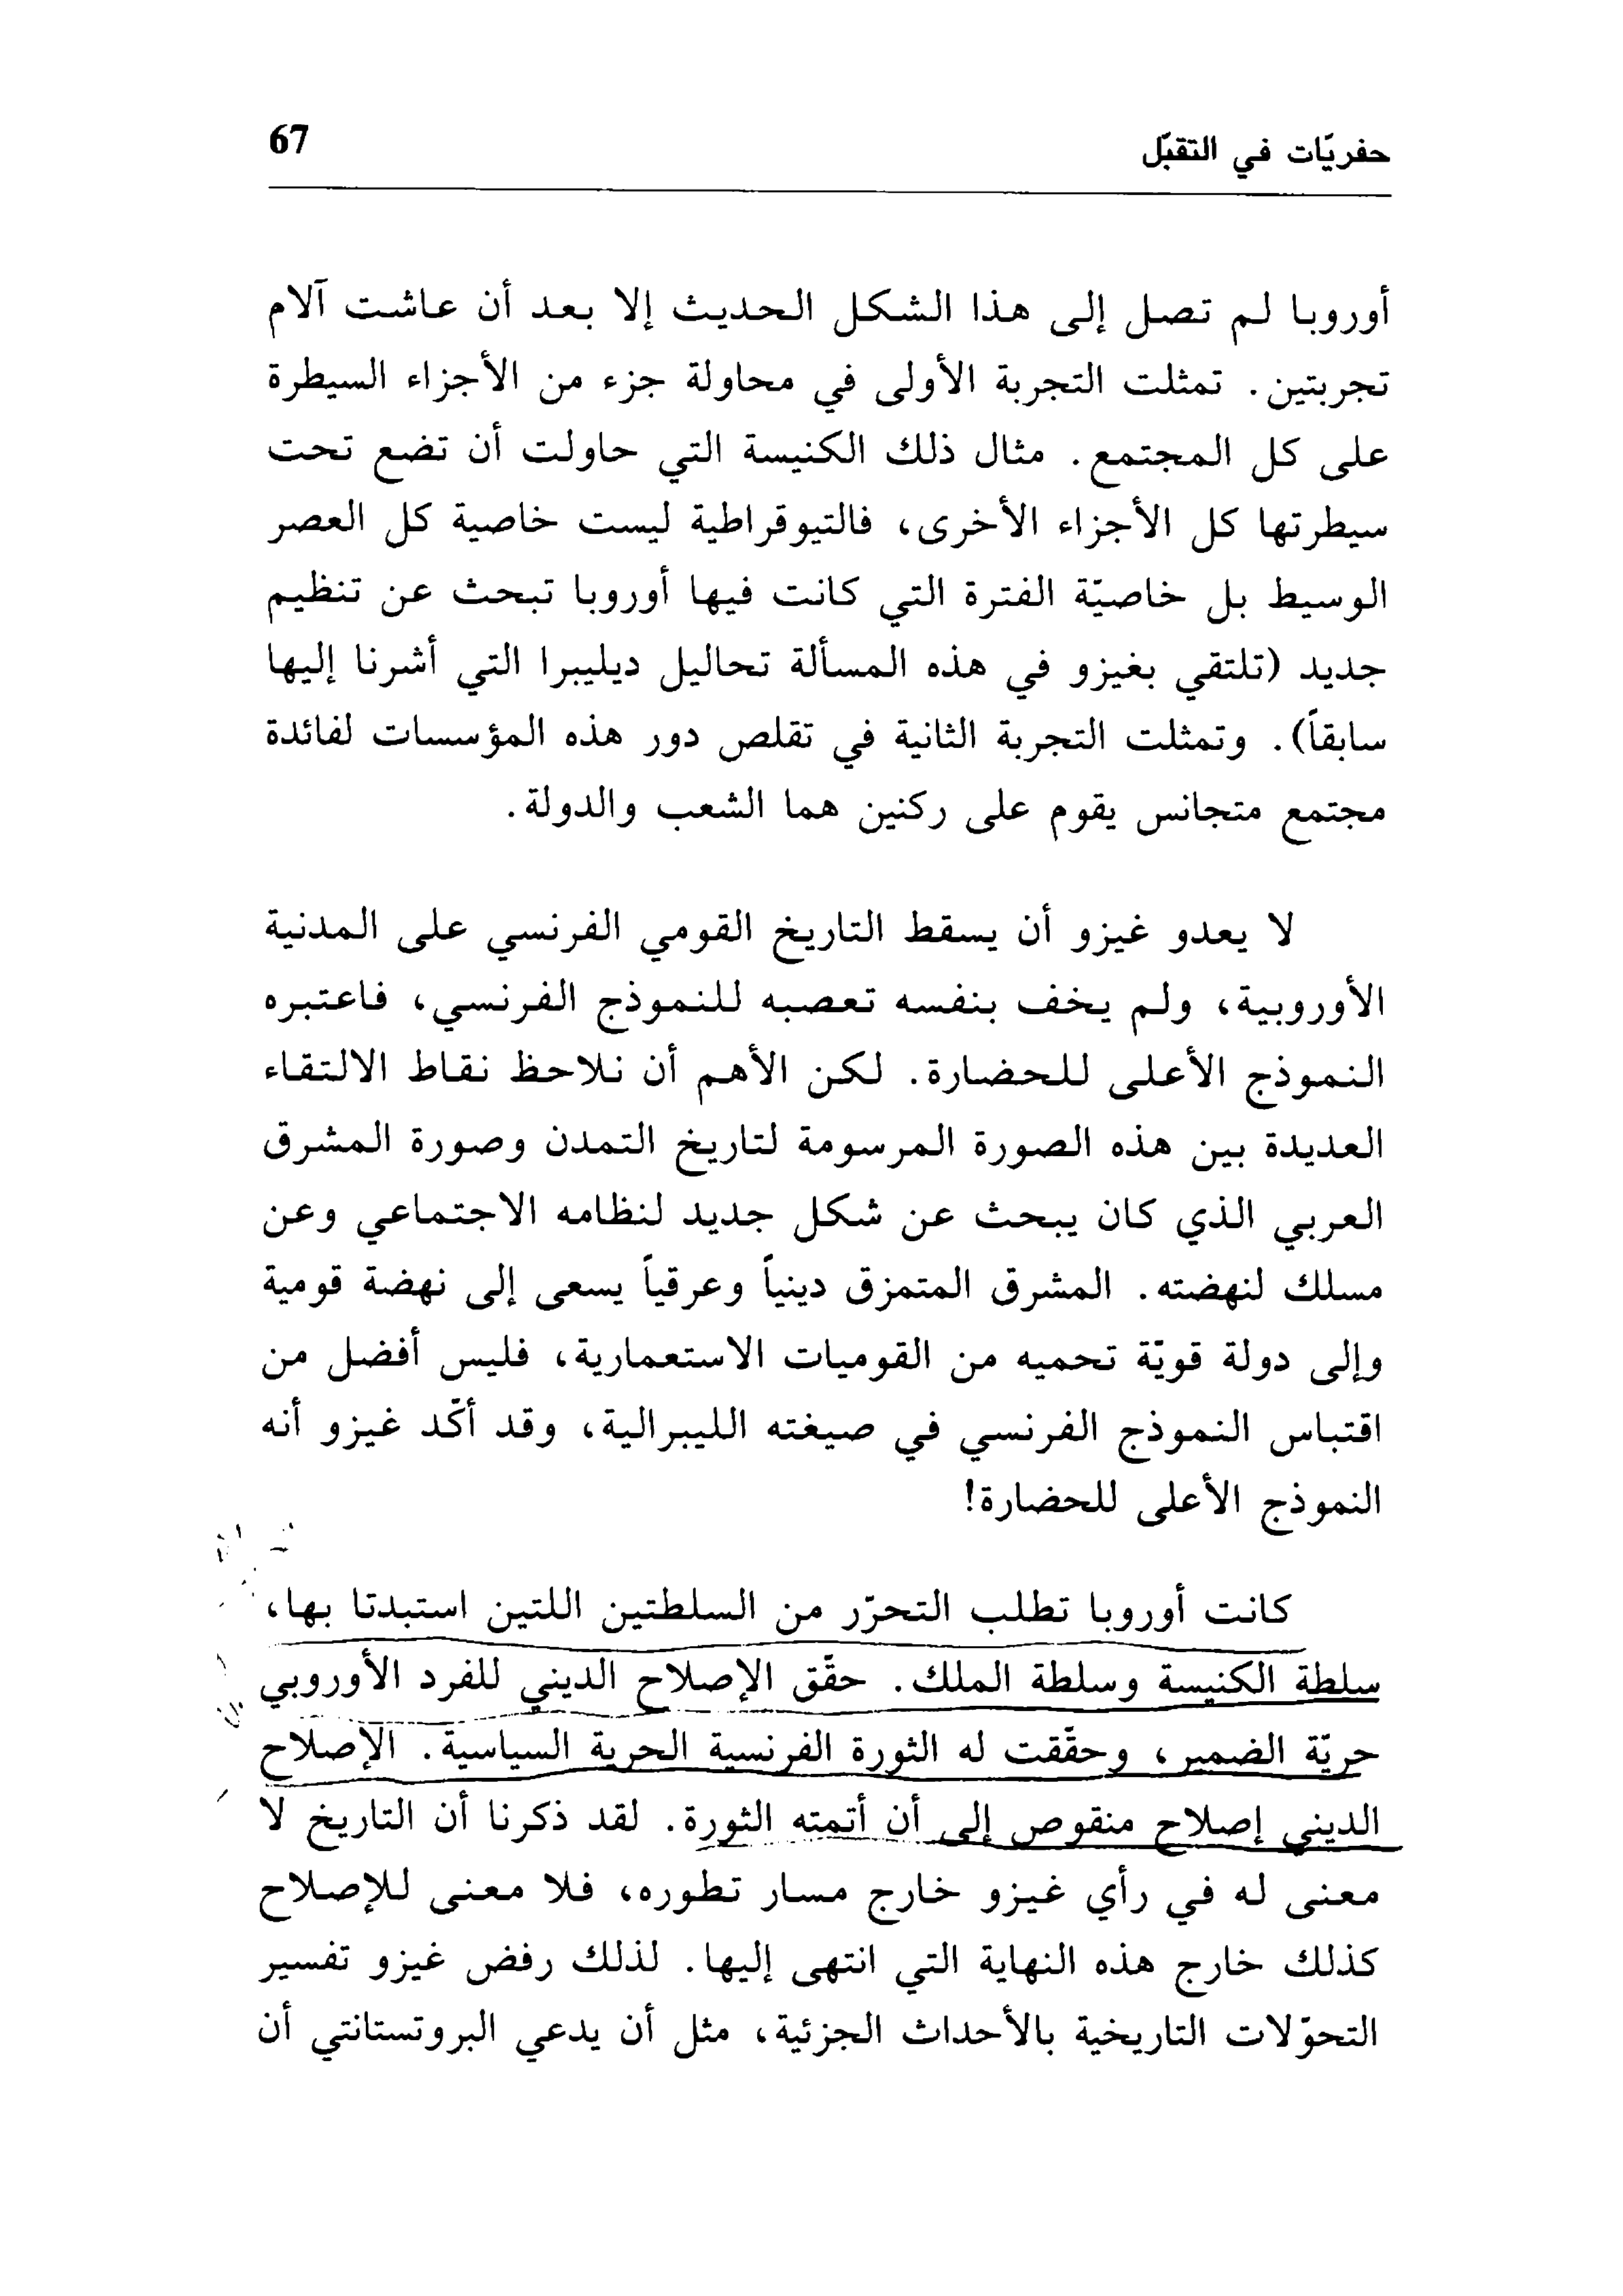 حفريّات في التقبّل 67
أوروبا لم تصل إلى هذا الشكل الحديث إلا بعد أن عاشت آلام
تجربتين. تمثلت التجربة الأولى في محاولة جزء من الأجزاء السيطرة
على كل المجتمع. مثال ذلك الكنيسة التي حاولت أن تضع تحت
سيطرتها كل الأجزاء الأخرى، فالتيوقراطية ليست خاصية كل العصر
الوسيط بل خاصيّة الفترة التي كانت فيها أوروبا تبحث عن تنظيم
جديد (تلتقي بغيزو في هذه المسألة تحاليل ديليبرا التي أشرنا إليها
سابقاً). وتمثلت التجربة الثانية في تقلص دور هذه المؤسسات لفائدة
مجتمع متجانس يقوم على ركنين هما الشعب والدولة.
لا يعدو غيزو أن يسقط التاريخ القومي الفرنسي على المدنية
الأوروبية، ولم يخف بنفسه تعصبه للنموذج الفرنسي، فاعتبره
النموذج الأعلى للحضارة. لكن الأهم أن نلاحظ نقاط الالتقاء
العديدة بين هذه الصورة المرسومة لتاريخ التمدن وصورة المشرق
العربي الذي كان يبحث عن شكل جديد لنظامه الاجتماعي وعن
مسلك لنهضته. المشرق المتمزق دينياً وعرقياً يسعى إلى نهضة قومية
وإلى دولة قويّة تحميه من القوميات الاستعمارية، فليس أفضل من
اقتباس النموذج الفرنسي في صيغته الليبرالية، وقد أكّد غيزو أنه
النموذج الأعلى للحضارة!
كانت أوروبا تطلب التحرّر من السلطتين اللتين استبدتا بها،
سلطة الكنيسة وسلطة الملك. حقّق الإصلاح الديني للفرد الأوروبي
حريّة الضمير، وحقّقت له الثورة الفرنسية الحرية السياسية. الإصلاح
الديني إصلاح منقوص إلى أن أتمته الثورة. لقد ذكرنا أن التاريخ لا
معنى له في رأي غيزو خارج مسار تطوره، فلا معنى للإصلاح
كذلك خارج هذه النهاية التي انتهى إليها. لذلك رفض غيزو تفسير
التحوّلات التاريخية بالأحداث الجزئية، مثل أن يدعي البروتستانتي أن